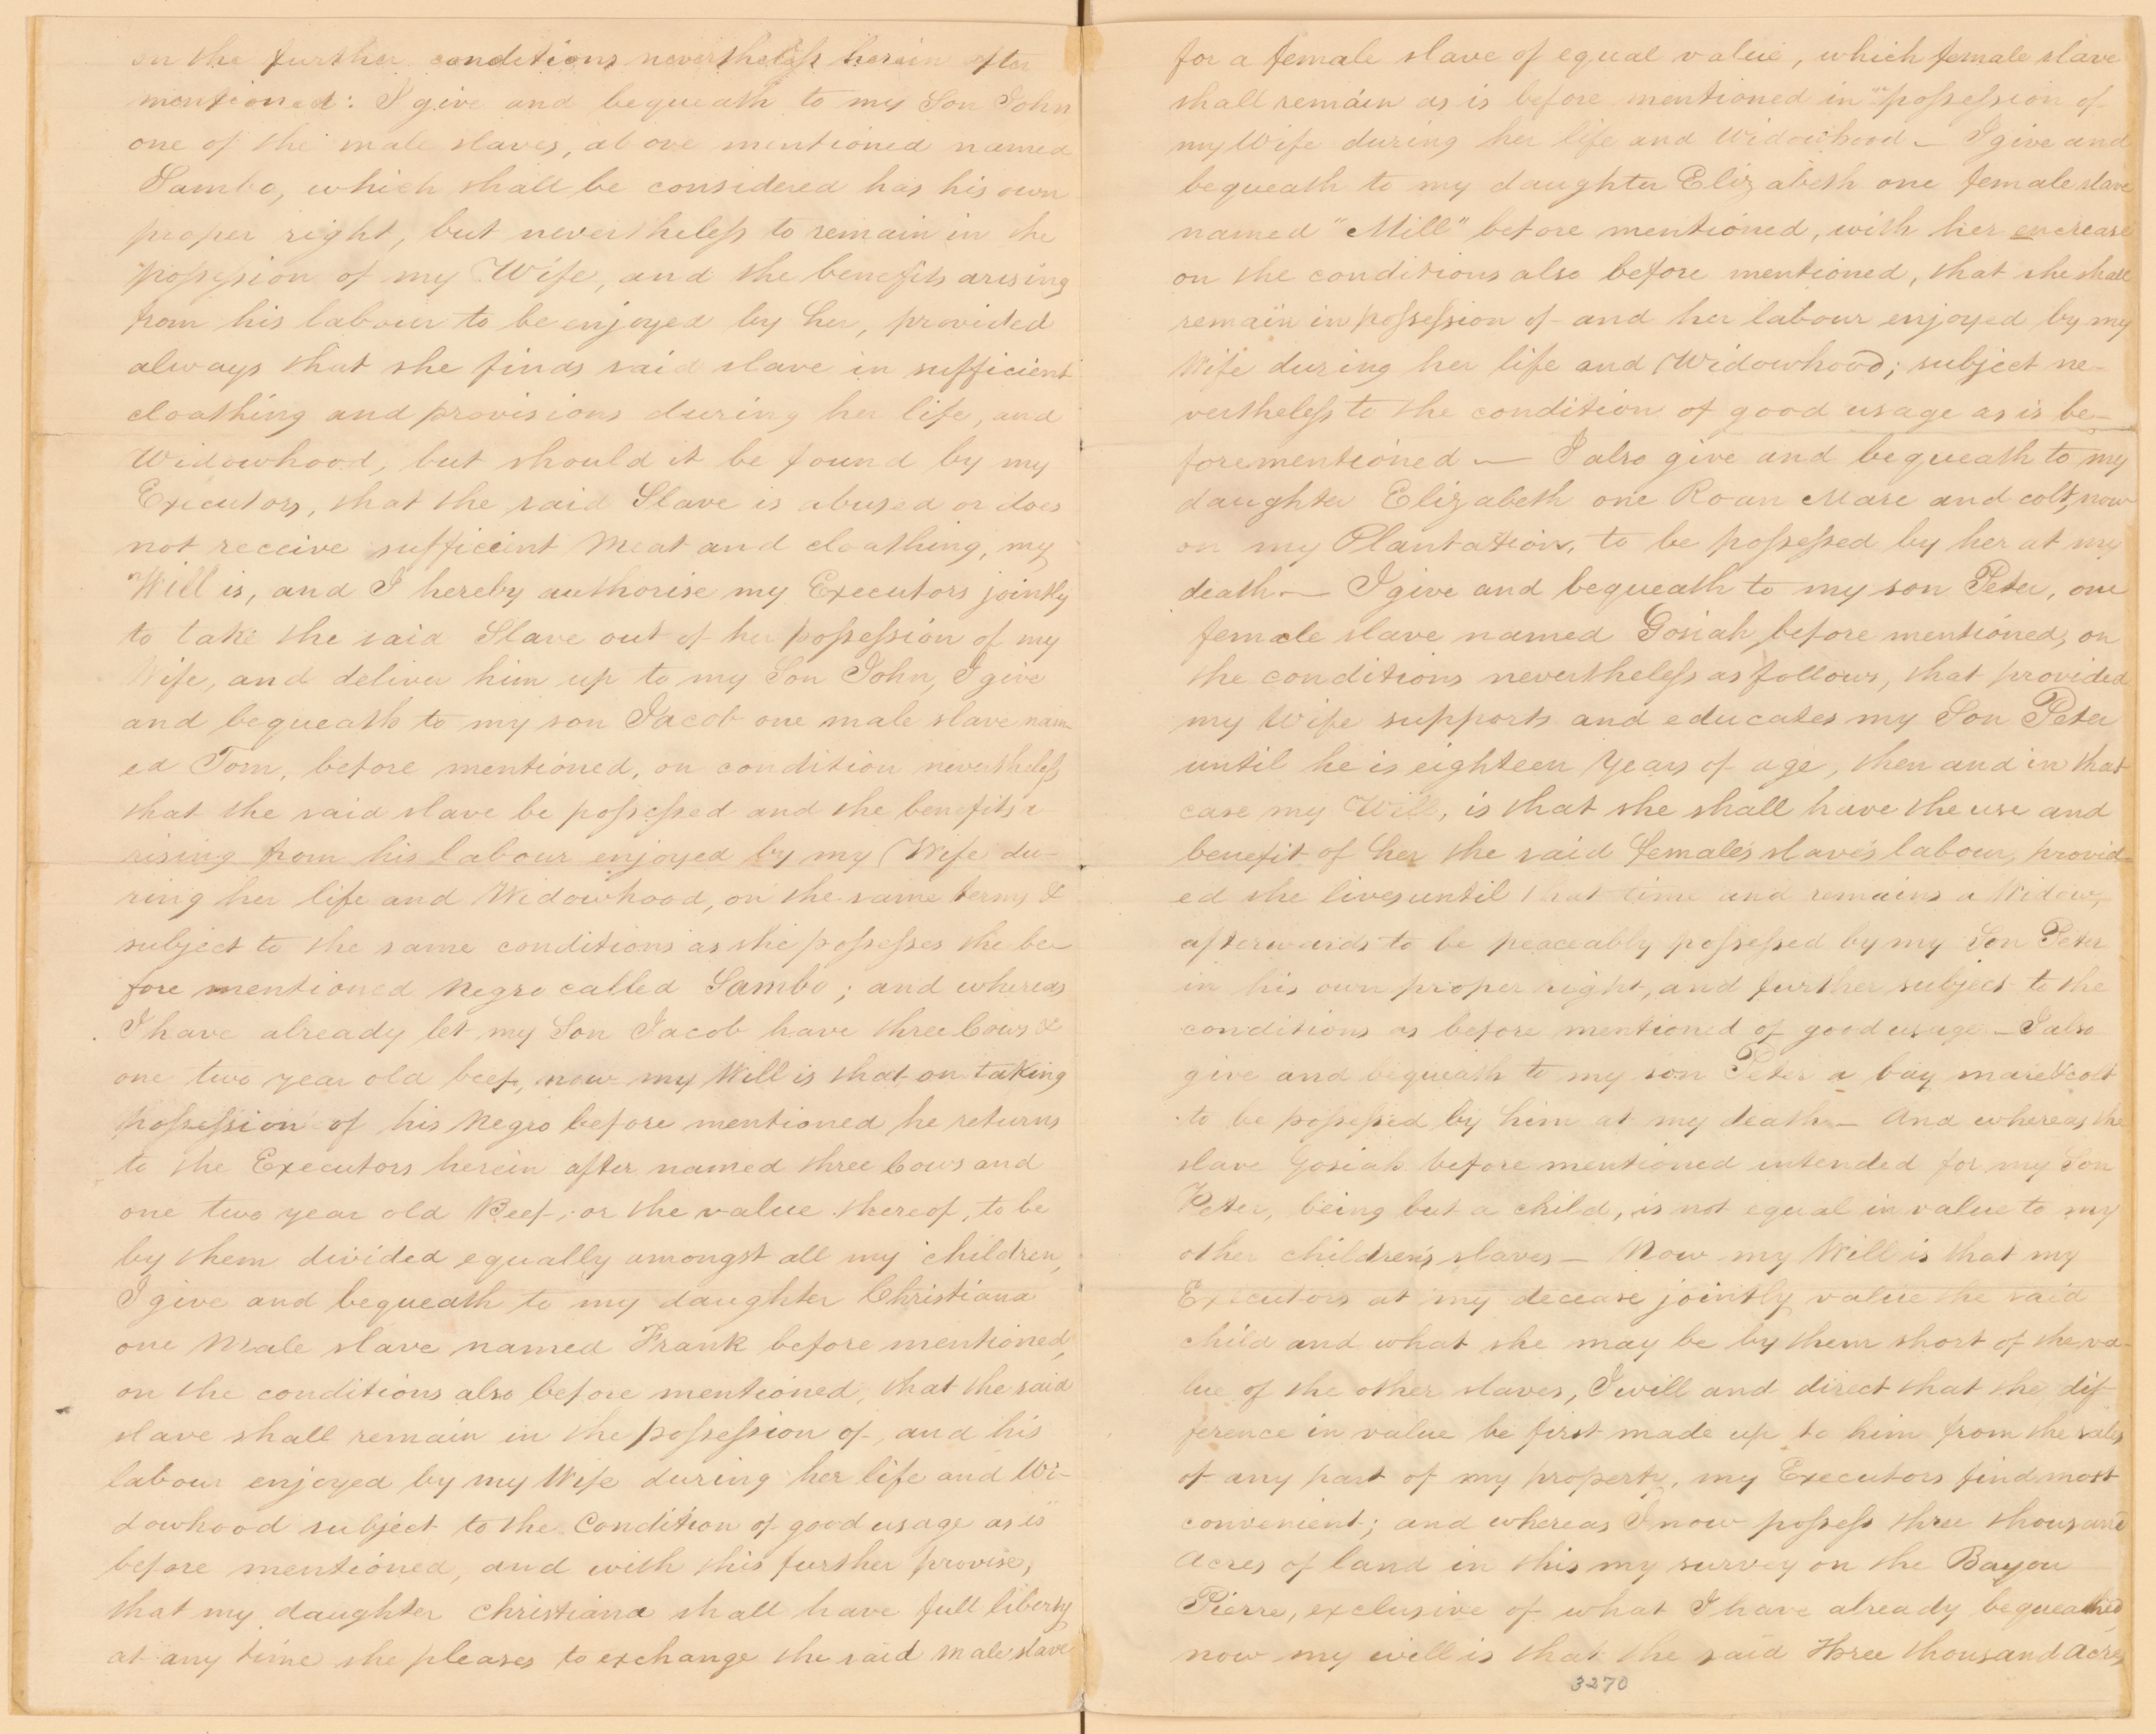 on the further conditions nevertheless herein after
mentioned: I give and bequeath to my Son John
one of the male slaves, above mentioned named
Sambo, which shall be considered has his own
proper right, but nevertheless to remain in the
possession of my Wife, and the benefits arising
from his labour to be enjoyed by her, provided
always that she finds said slave in sufficient
cloathing and provisions during her life, and
Widowhood, but should it be found by my
Executors, that the said Slave is abused or does
not receive sufficient Meat and cloathing, my
Will is, and I hereby authorise my Executors jointly
to take the said Slave out of her possession of my
Wife, and deliver him up to my Son John, I give
and bequeath to my son Jacob one male slave nam-
ed Tom, before mentioned, on condition nevertheless
that the said slave be possessed and the benefits a
rising from his labour enjoyed by my Wife du-
ring her life and Widowhood, on the same terms &
subject to the same conditions as she possesses the be-
fore mentioned Negro called Sambo; and whereas
I have already let my Son Jacob have three Cows &
one two year old beef, now my Will is that on taking
possession of his Negro before mentioned he returns
to the Executors herein after named three Cows and
one two year old Beef, or the value thereof, to be
by them divided equally amongst all my children,
I give and bequeath to my daughter Christiana
one Male slave named Frank before mentioned,
on the conditions also before mentioned, that the said
slave shall remain in the possession of, and his
labour enjoyed by my Wife during her life and Wi-
dowhood subject to the Condition of good usage as is
before mentioned, and with this further provise,
that my daughter Christiana shall have full liberty
at any time she pleases to exchange the said male slave
for a female slave of equal value, which female slave
shall remain as is before mentioned in possession of
my Wife during her life and Widowhood — I give and
bequeath to my daughter Elizabeth one female slave
named "Mill" before mentioned, with her encrease
on the conditions also before mentioned, that she shall
remain in possession of and her labour enjoyed by my
Wife during her life and Widowhood; subject ne-
vertheless to the condition of good usage as is be-
forementioned — I also give and bequeath to my
daughter Elizabeth one Roan Mare and colt, now
on my Plantation, to be possessed by her at my
death — I give and bequeath to my son Peter, one
female slave named Gosiah, before mentioned, on
the conditions nevertheless as follows, that provided
my Wife supports and educates my Son Peter
until he is eighteen Years of age, then and in that
case my Will, is that she shall have the use and
benefit of her the said female's slave's labour, provid-
ed she lives until that time and remains a Widow,
afterwards to be peaceably possessed by my Son Peter
in his own proper right, and further subject to the
conditions as before mentioned of good usage — I also
give and bequeath to my son Peter a bay mare & colt
to be possessed by him at my death — And whereas the
slave Gosiah before mentioned intended for my Son
Peter, being but a child, is not equal in value to my
other children's slaves — Now my Will is that my
Executors at my decease jointly value the said
child and what she may be by them short of the va-
lue of the other slaves, I will and direct that the dif
ference in value be first made up to him from the sales
of any part of my property, my Executors find most
convenient; and whereas I now possess three thousand
Acres of land in this my survey on the Bayou
Pierre, exclusive of what I have already bequeathed
now my will is that the said three thousand Acres
3270